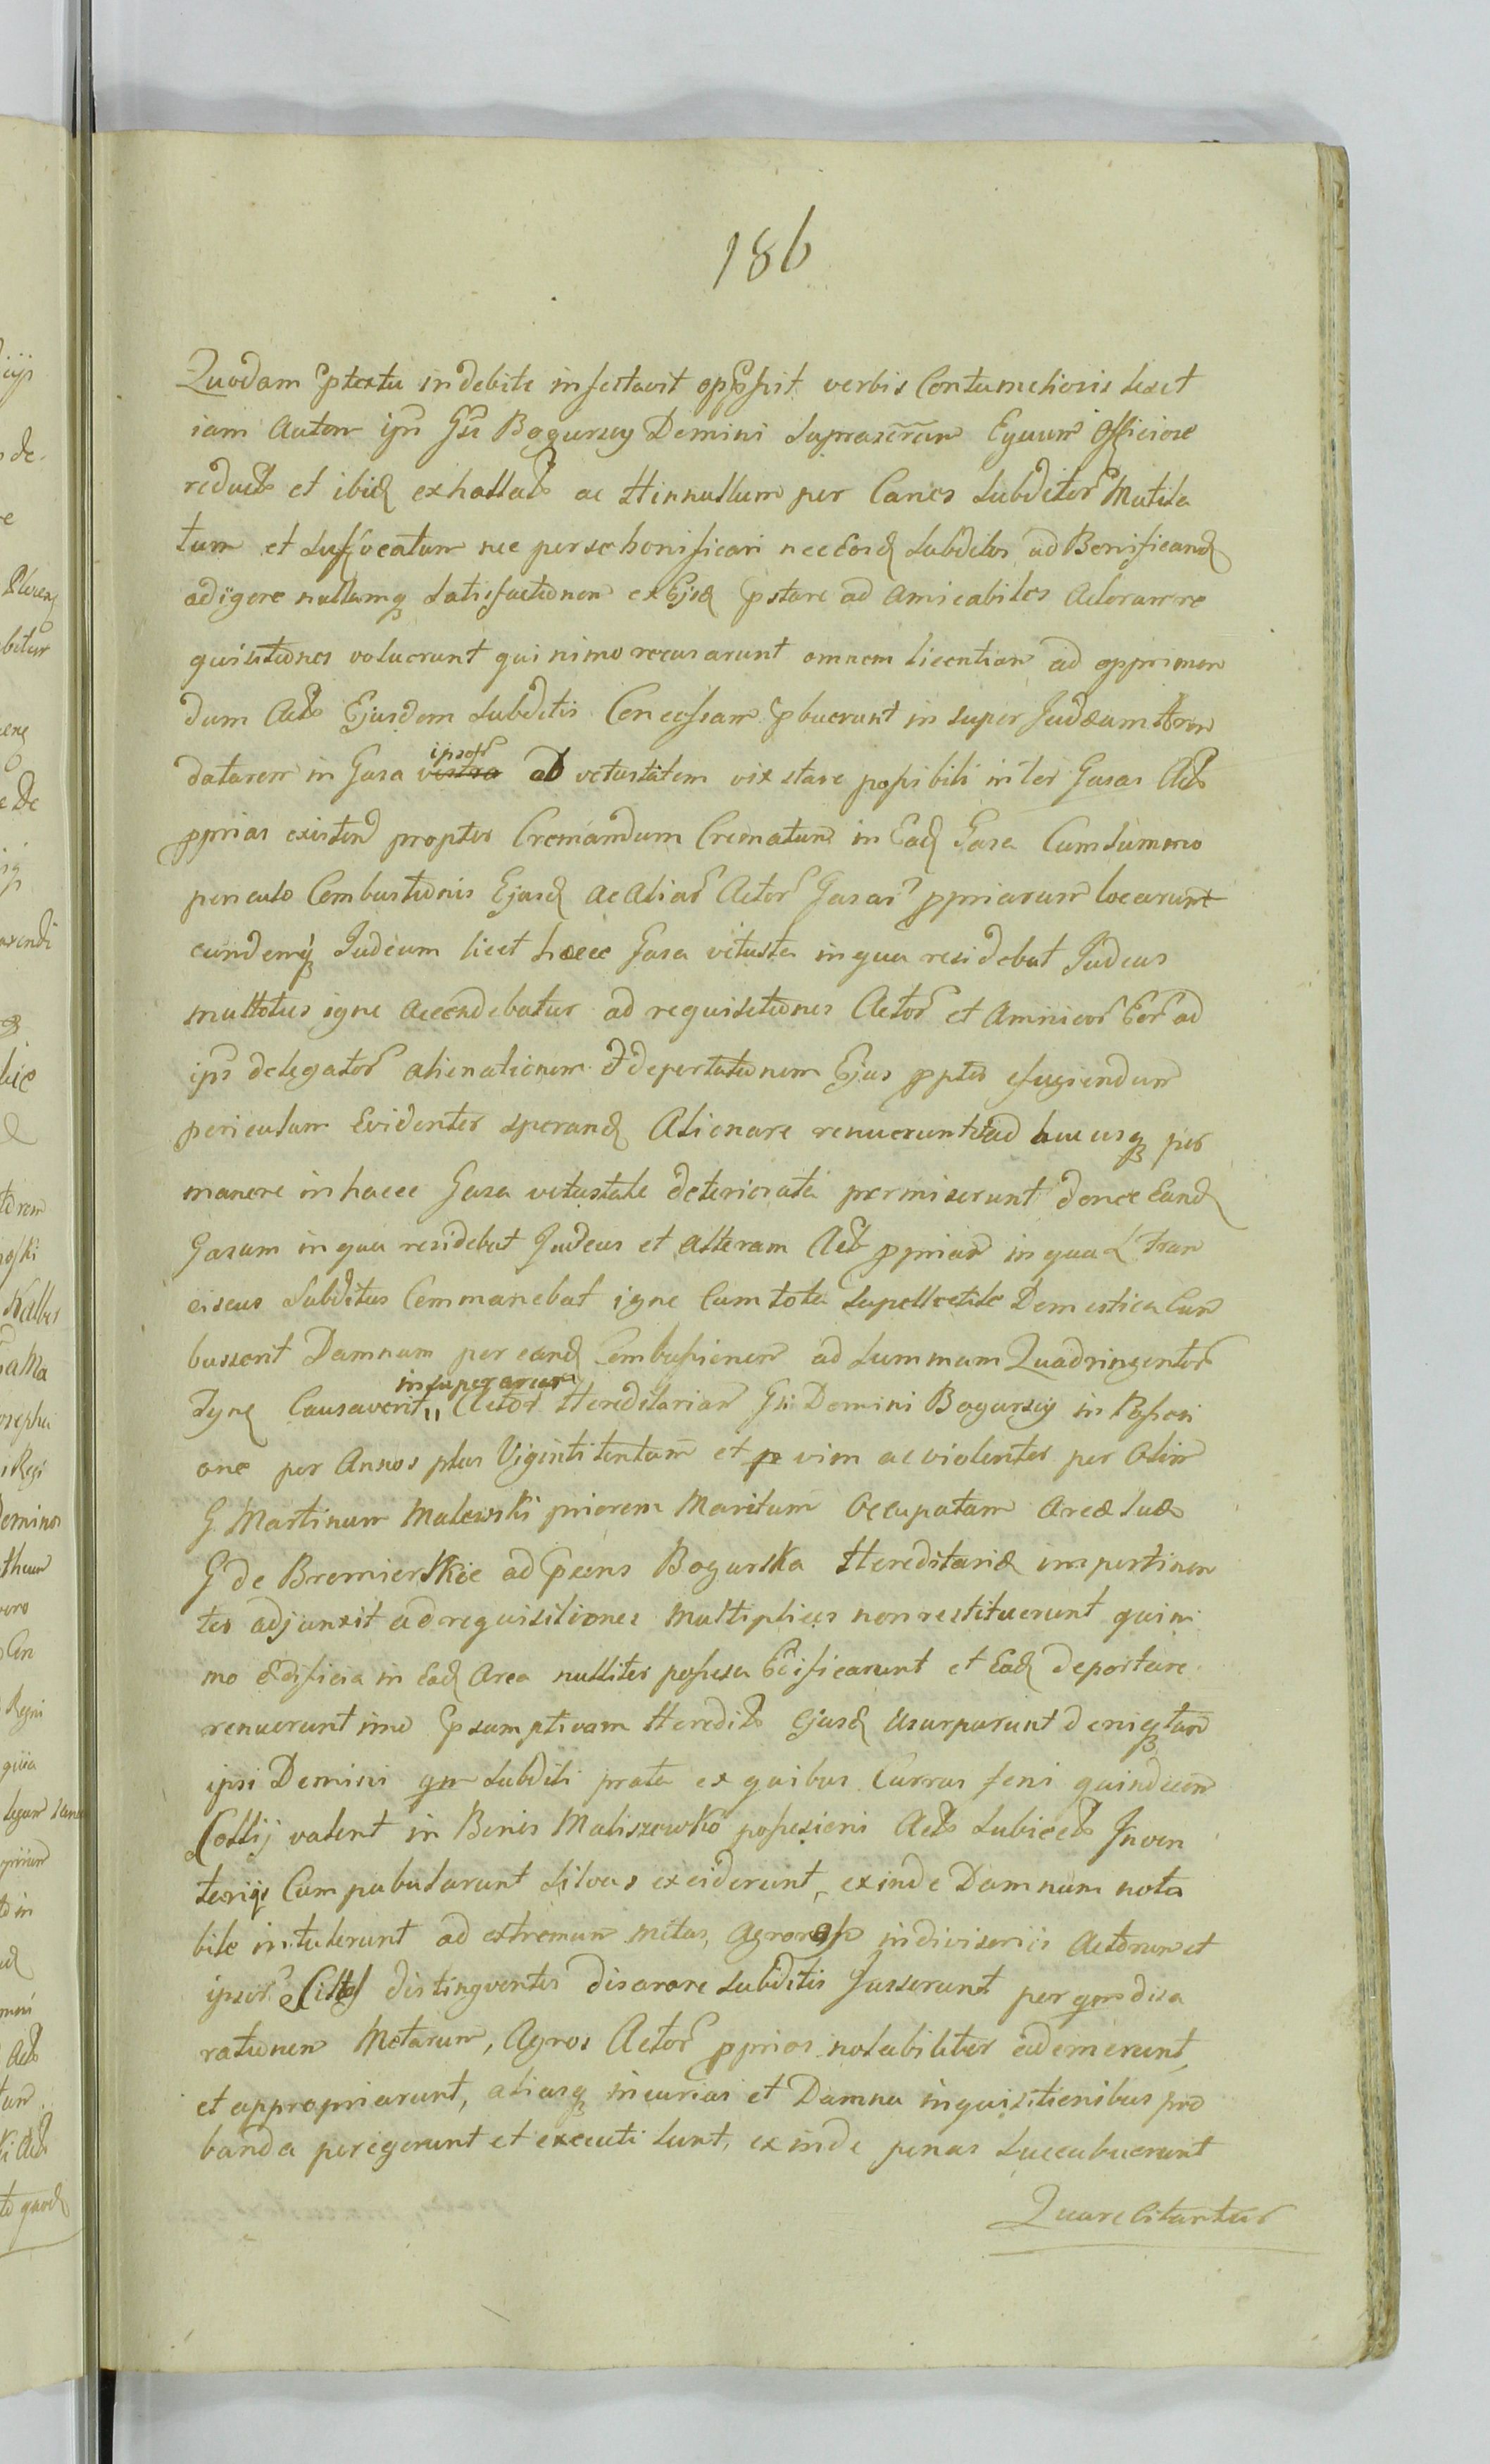 186
Quodam ptextu indebite infestavit oppssit verbis Contumeliosis lexet
iam autem ipsi Gsi Bogurscy Domini suprascrum Equum officiose
reduct et ibid exhallat ac Hinnullum per Canes subditor Mutila
tum et suffocatum nec per se bonificari nec Eosd subditos ad Bonificand
adigere nullamq satisfactionem ex Ejsd pstare ad amicabiles Actorum re
quisitiones voluerunt quinimo recusarunt omnem licentiam ad opprimen
dum Acts Ejusdem subditis Concessam pbuerunt insuper Judæum Aren
datarem in Gasa vestra ipsor ob vetustatem vix stare possibili inter Gasas Acts
pprias existen propter Cremandum Crematum in Ead Gasa Cum summo
periculo Combustionis Ejusd ac Aliar Actor Gasar ppriarum locarunt
eundemq Judeum licet hæcce Gasa vetusta in qua residebat Judeus
multoties igne accendebatur ad requisitiones Actor et Amicor Eor ad
ips delegator alienationem et deportationem Ejus ppter effugiendum
periculum Evidenter sperand Alienare renuerunt sed hucusq per
manere in hacce Gasa vetustate deteriorata permiserunt donec Eand
Gasam in qua residebat Judeus et alteram Act ppriam in qua L Fran
ciscus subditus Commanebat igne Cum tota supellectile Domestica Com
busserit Damnum per eand Combussionem ad summam Quadringentor
Tyn Causaverit,, insuper aream Actor Hereditariam Gsi Domini Bogurscy in Possesi
one per Annos plus Viginti tentam et p vim ac violenter per olim
G. Martinum Malewski priorem Maritum occupatam areæ suæ
G de Bromierskie ad pæens Bogurska Hereditariæ impertinen
ter adjunxit ad requisitiones multiplices non restituerunt quini
mo ædificia in Ead Area nulliter possesa Edificarunt et Ead deportare
renuerunt imo psumptivam Heredit Ejusd usurparunt deniq tam
ipsi Domini qm subditi prata ex quibus Currus feni quindecim
Collij valent in Bonis Maliszewko possesioni Acts subiects Inven
tariis Cum pabularunt silvas exciderunt, exinde Damnum nota
bile intulerunt ad extremum metas, agror indivisoriis Actorum et
ipsor distingventes disarare subditis Jusserunt per qm disa
rationem Metarum, Agros Actor pprios notabiliter ademerunt,
et appropriarunt, aliasq incurias et Damna inquisitionibus pro
banda peregerunt et executi sunt, exinde penas succubuerunt
Quare Citantur